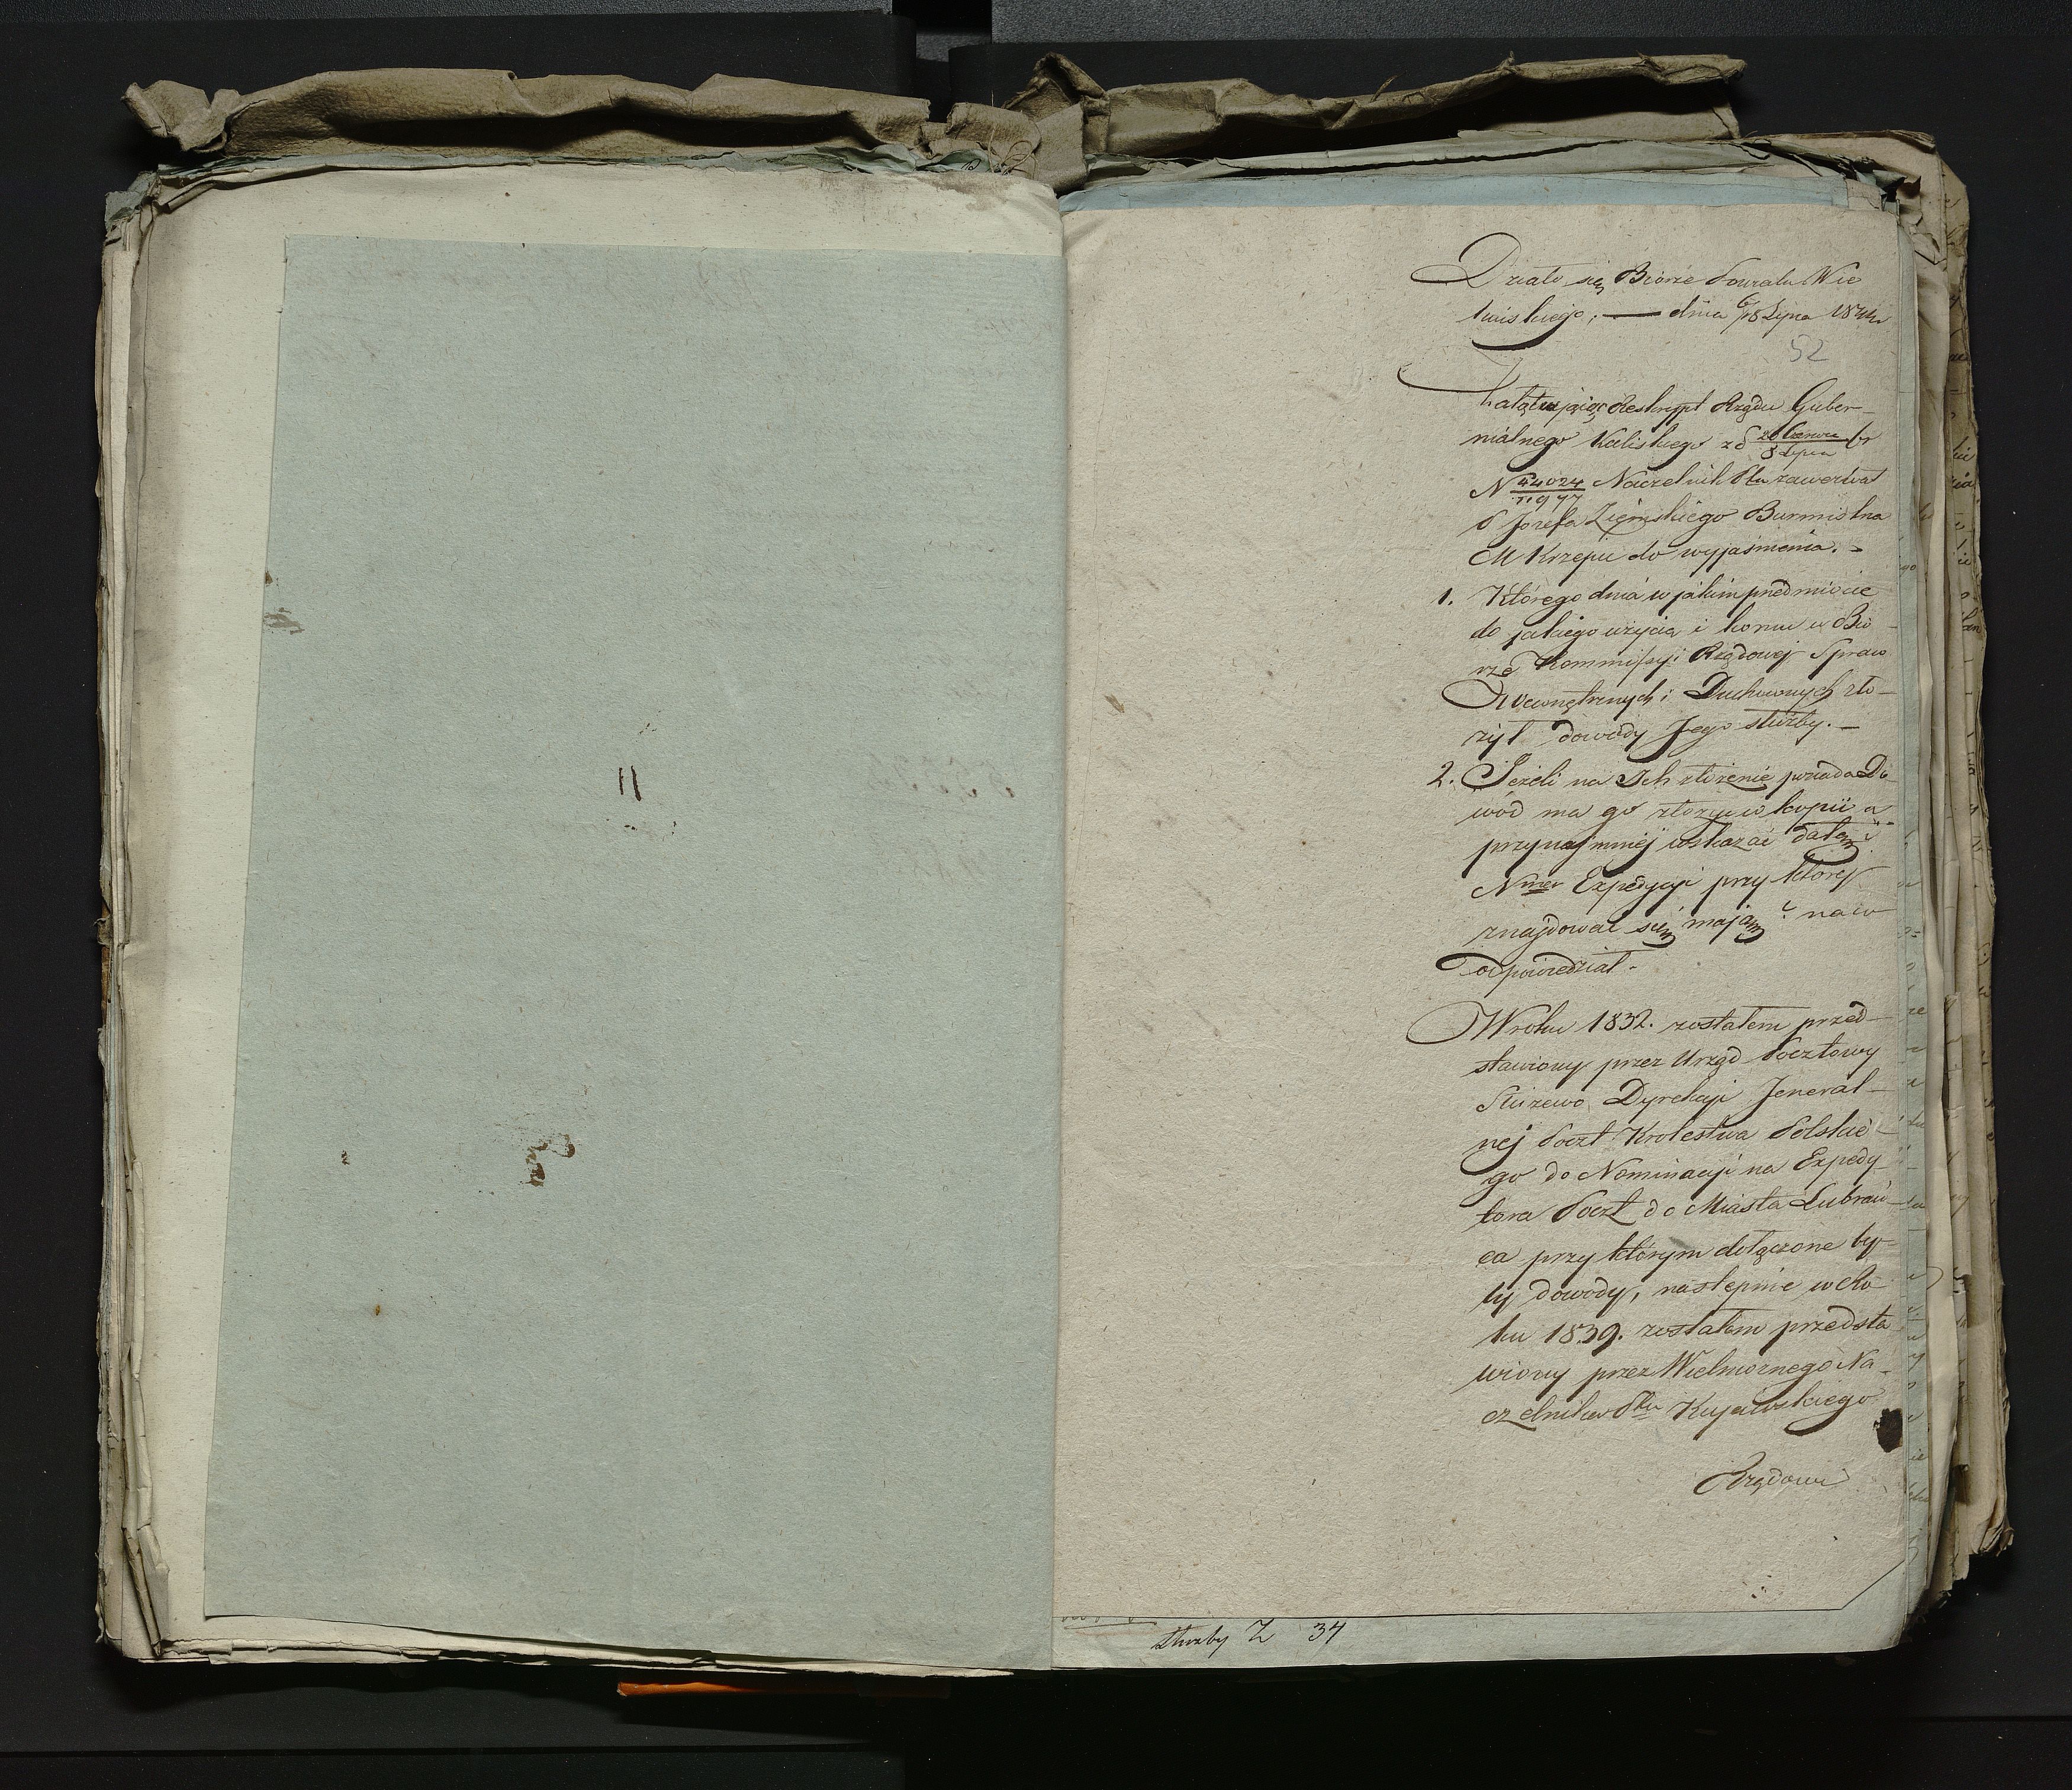 Działo się Biórze Powiatu Wie
luńskiego; — dnia 6/18 Lipca 1844
52
Załatwiając Reskrypt Rządu Guber-
nialnego Kaliskiego z d 26 Czerwca/8 Lipca br
N 44024/11977 Naczelnik Ptu zawezwał
P Józefa Ziemskiego Burmistrza
M Krzepic do wyjaśnienia. -
1. Którego dnia w jakim przedmiocie
do jakiego użycia i komu w Biu
rze Kommissyi Rządowej Spraw
Wewnętrznych i Duchownych zło-
żył dowody Jego służby. -
2. Jeżeli na Ich złożenie posiada Do
wód ma go złożyć w kopii a
przynajmniej wskazać datę i
Nmer Expedycyi przy której
znajdować się mają? na co
odpowiedział.
W roku 1832. zostałem przed-
stawiony przez Urząd Pocztowy
Służewo Dyrekcyi Jeneral-
nej Poczt Krolestwa Polskie-
go do Nominacyi na Expedy-
tora Poczt do Miasta Lubrań-
ca przy którym dołączone by-
ły dowody, następnie w Ro-
ku 1839. zostałem przedsta
wiony przez Wielmożnego Na-
czelnika Ptu Kujawskiego
Rządowi
służby Z 34